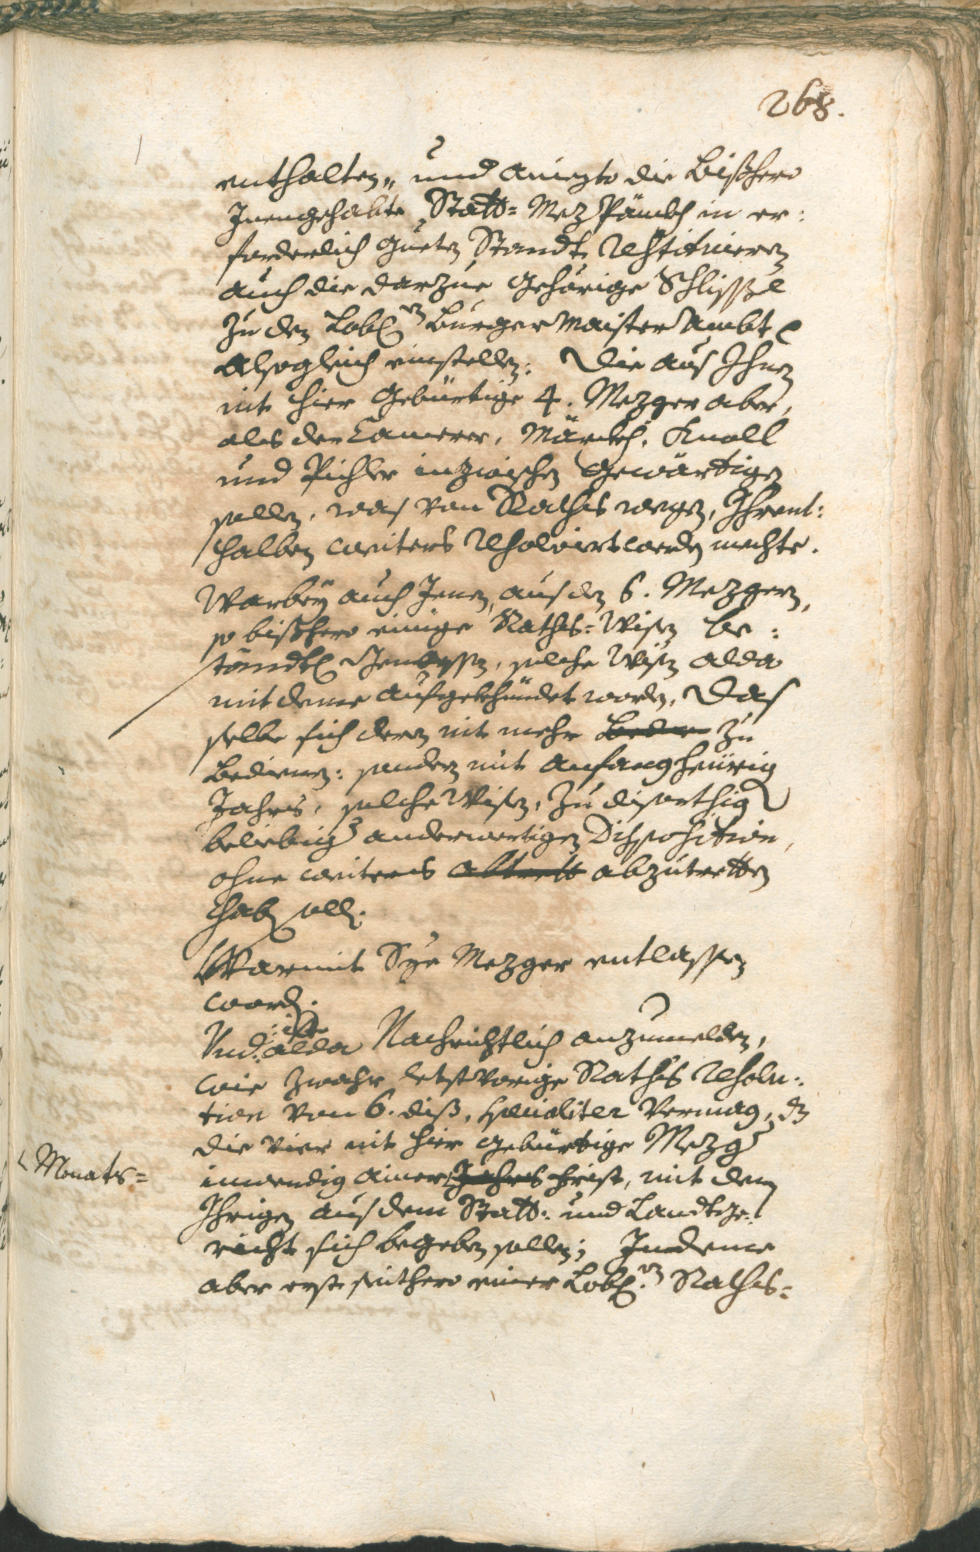 268.
enthalten, und aniezto die bißhero
Innengehabte Statt= Mez Pänckh in er:
forderlich gueten Standt restituieren
auch die darzue gehörige Schlissel
zu dem Lobl: Burgermaister Ambt
alsogleich einstellen. Die aus Ihnen
nit hier gebürtige 4. Mezger aber,
als der Camerer, Märckh, Knoll
und Pichler inzwischen gewärtigen
sollen, was von Raths wegen, Ihrent:
halben weiters resolviert werden mechte.
Warbey auch Jenen, aus den 6. Mezgern,
so bißhero einige Raths= Wisen be:
ständtl: genossen, solche Wisen alda
mit deme aufgekhündet worden, Das
selbe sich deren nit mehr zu
bedienen: sondern mit anfang heurig
Jahrs, solche Wisen, zu disorthig
beliebig anderwertigen Disposition,
ohne weiters abtrett abzutretten
haben sollen.
Warmit Sye Mezger entlassen
worden.
Und: ist alda Nachrichtlich anzumelden,
wie zwahr letst vorige Raths Resolu:
tion von 6. diß, specialiter vermag, dz
die vier nit hier gebürtige Mezger
Monats=
inwendig ainer Jahrs Frist, mit den
Ihrigen aus dem Statt: und Landtge:
richt sich begeben sollen; Indeme
aber erst seithero einer Lobl: Raths=